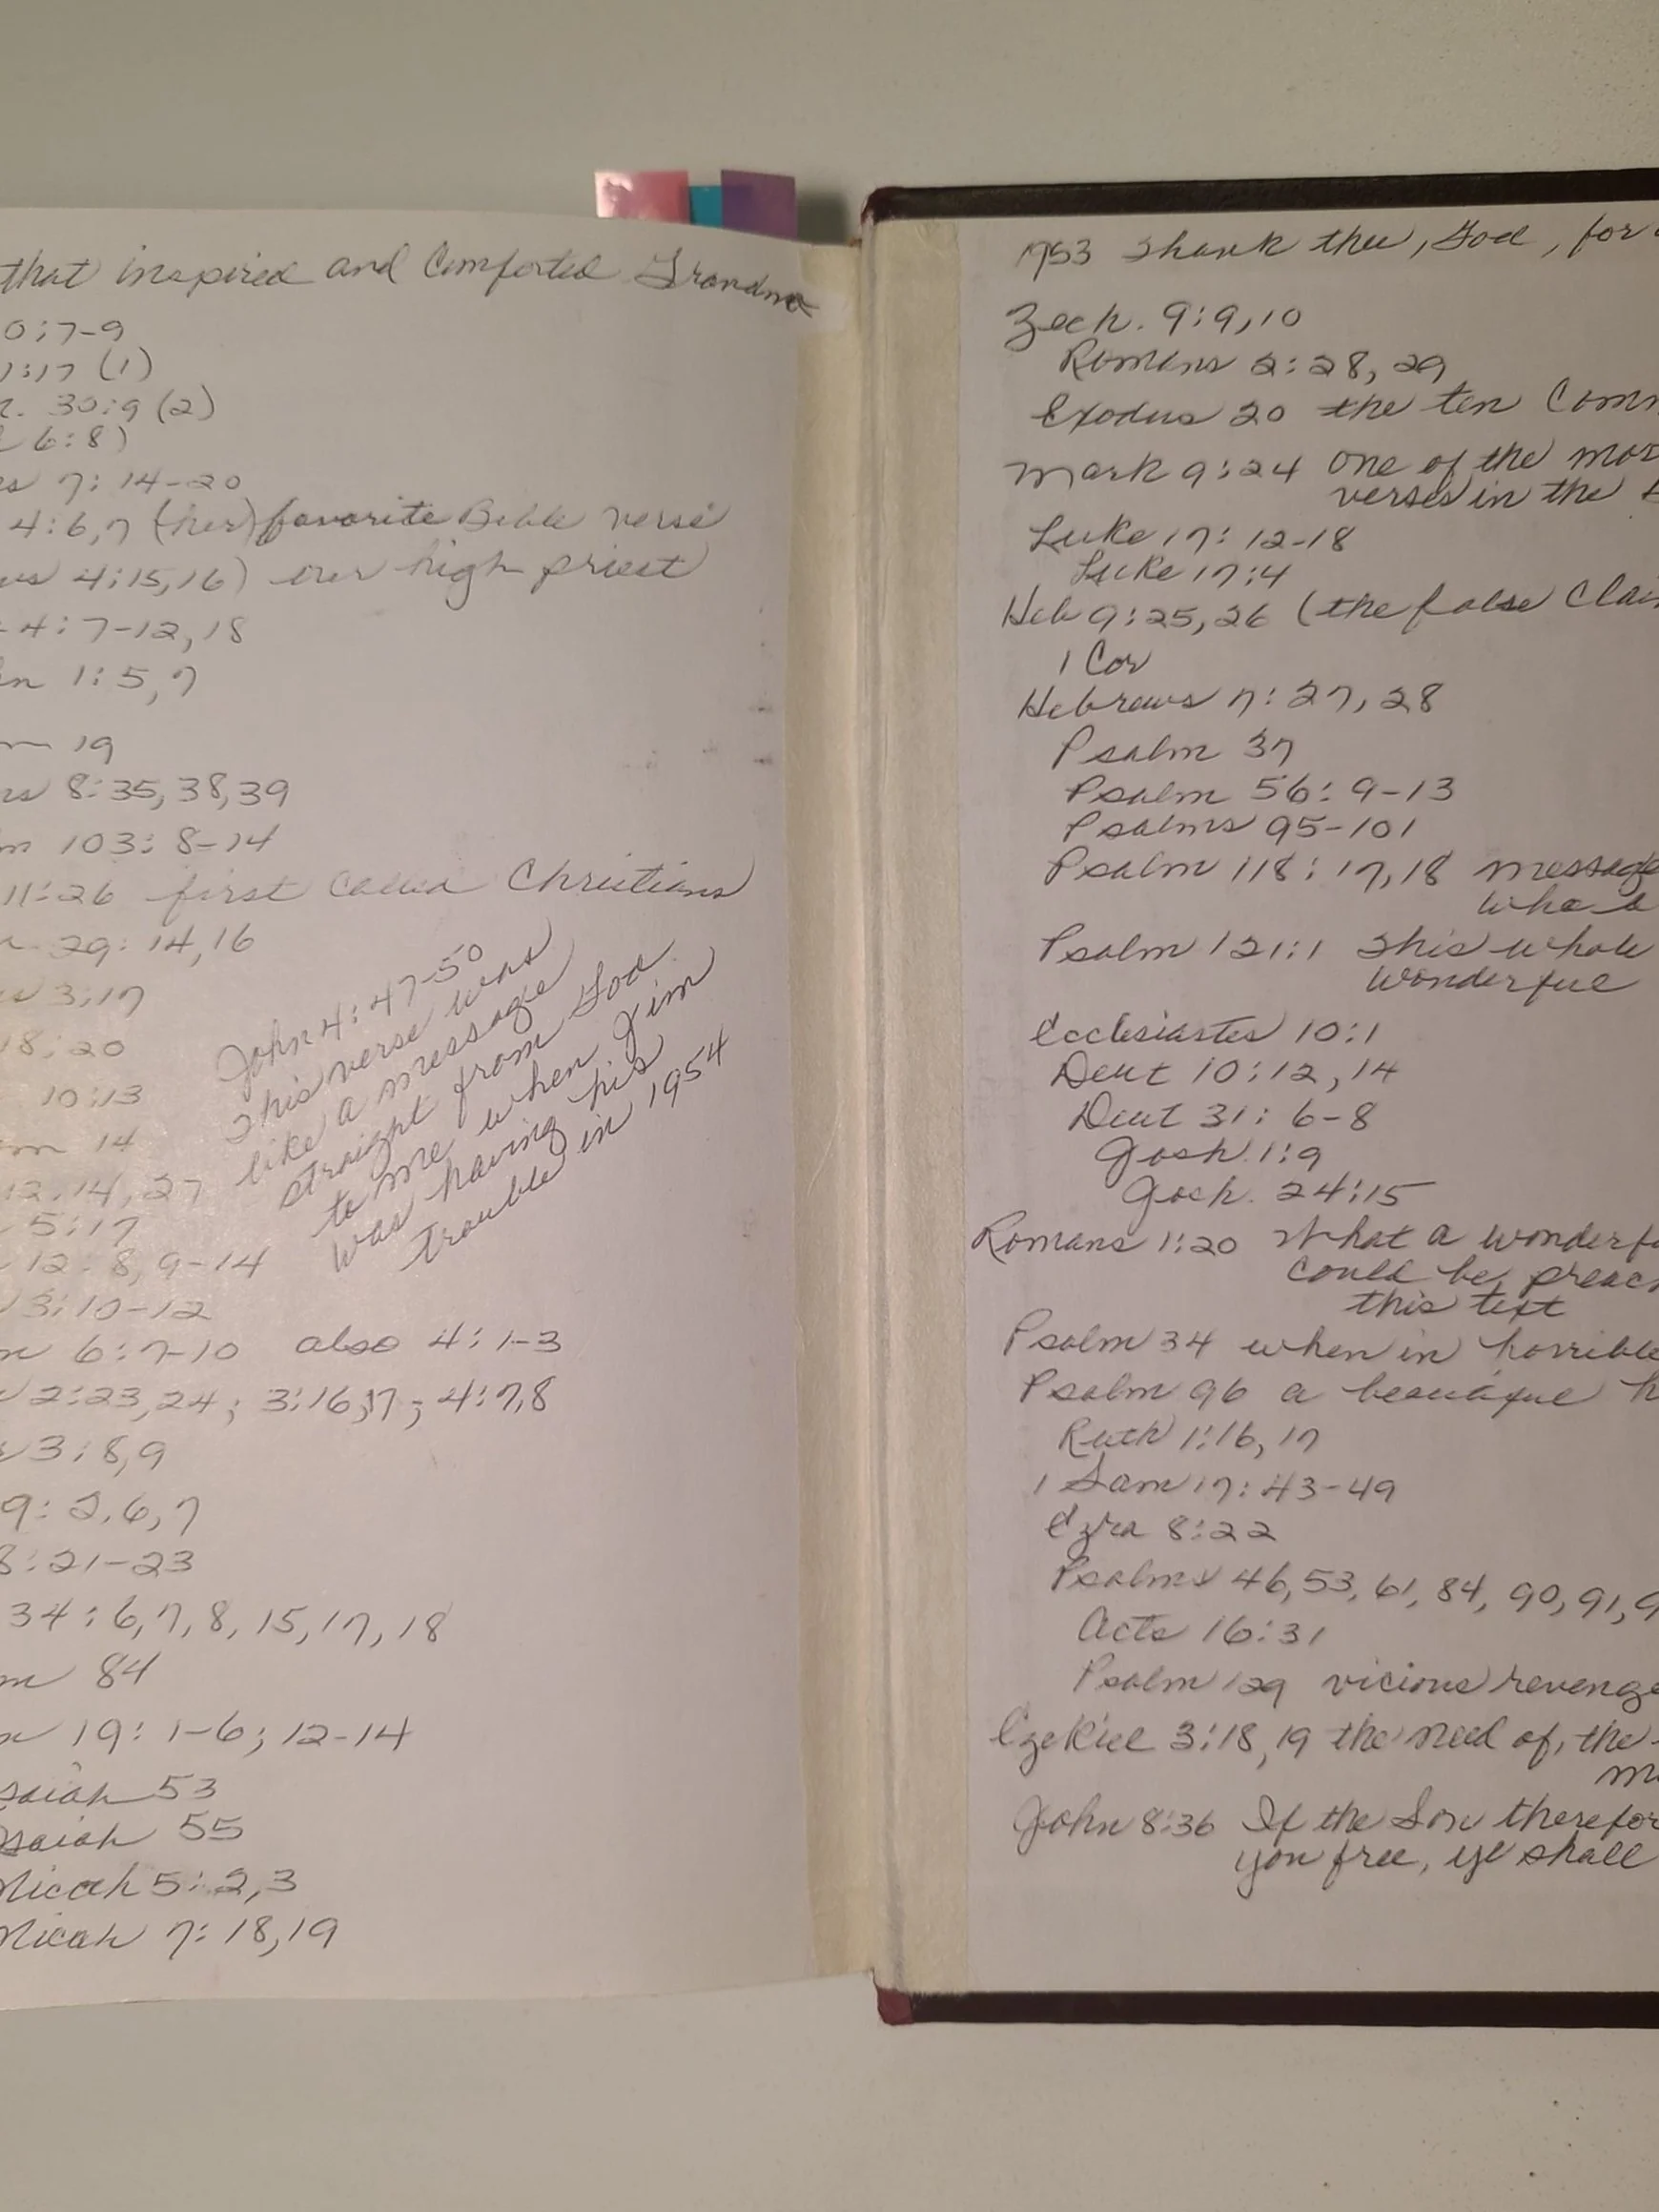 that inspired and Comforted Grandma
0:7-9
1:17 (1)
. 30:9 (2)
6:8)
7:14-20
4:6,7 (her) favorite Bible verse
4:15,16) our high priest
4:7-12,18
1:5,7
19
8:35,38,39
103:8-14
11:26 first called Christians
29:14,16
3:17
18:20
10:13
14
12:14,27
5:17
12:8,9-14
3:10-12
6:7-10 also 4:1-3
2:23,24; 3:16,17; 4:7,8
3:8,9
9:2,6,7
8:21-23
34:6,7,8,15,17,18
84
19:1-6; 12-14
saiah 53
saiah 55
Micah 5:2,3
Micah 7:18,19
John 4:47-50
This verse was
like a message
straight from God
to me when Jim
was having his
trouble in 1954
1953 Thank thee, God, for
Zech. 9:9,10
Romans 2:28,29
Exodus 20 the ten Comm
Mark 9:24 One of the mos
verses in the
Luke 17:12-18
Luke 17:4
Heb 9:25,26 (the false Clai
1 Cor
Hebrews 7:27,28
Psalm 37
Psalm 56:9-13
Psalms 95-101
Psalm 118:17,18 message
who
Psalm 121:1 This whole
wonderful
Ecclesiastes 10:1
Deut 10:12,14
Deut 31:6-8
Josh. 1:9
Josh. 24:15
Romans 1:20 What a wonderf
could be preac
this text
Psalm 34 when in horrible
Psalm 96 a beautiful h
Ruth 1:16,17
1 Sam 17:43-49
Ezra 8:22
Psalms 46,53,61,84,90,91,9
Acts 16:31
Psalm 129 vicious revenge
Ezekiel 3:18,19 the need of the
m
John 8:36 If the Son therefor
you free, ye shall